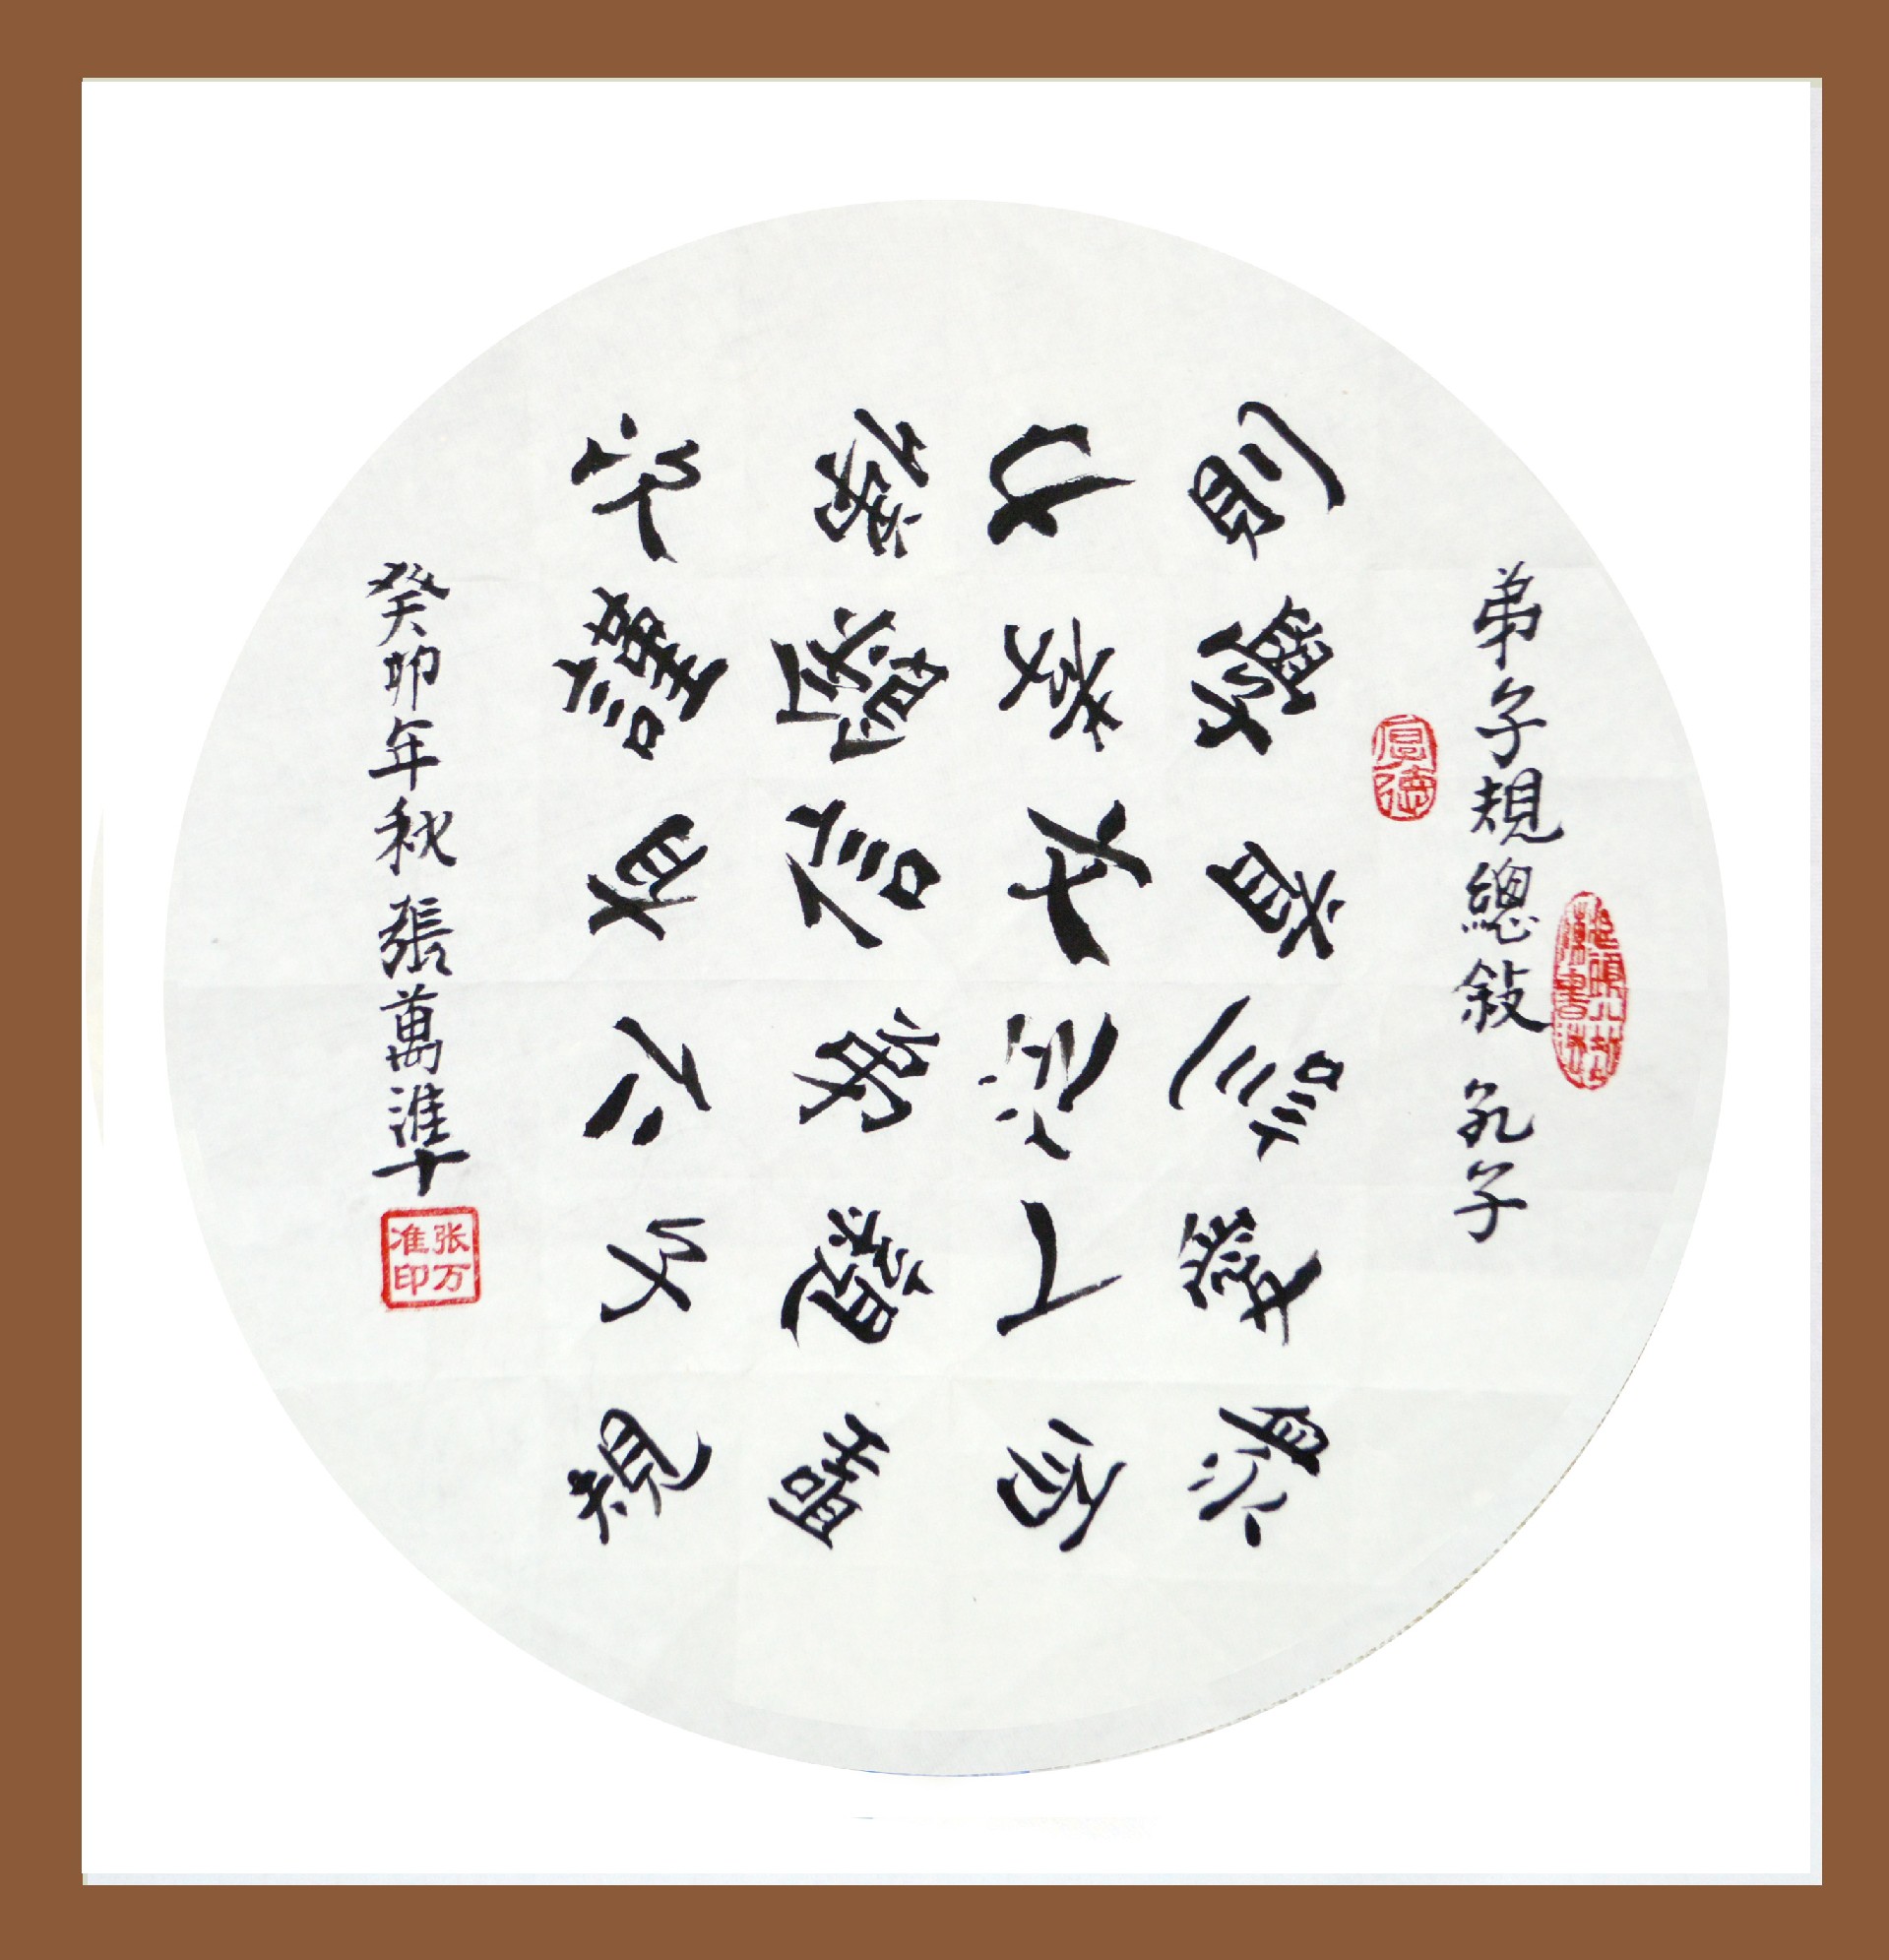 弟子規總敘 孔子
厚德
則學首訓愛眾
力孝文汎人有
弟餘信弟親聖
次謹而仁子規
癸卯年秋張萬準
张万准印